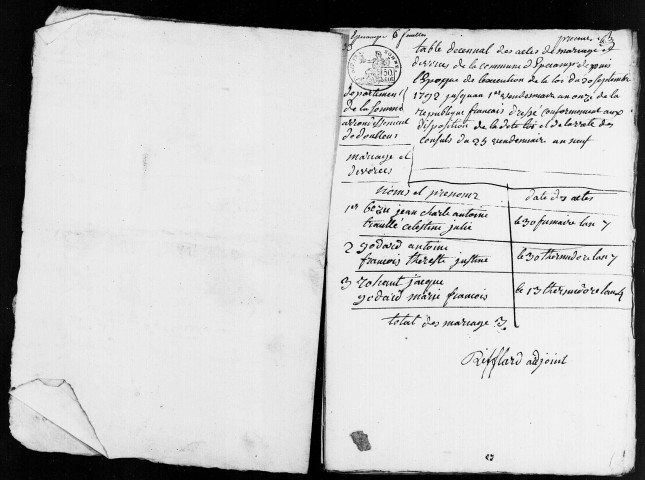 Epécamps 6 feuillets
table decennal des actes de mariage et
divorces de la commune d'Epecamps depuis
l'Epoque de l'execution de la loi du 20 septembre
1792 jusquau 1er vendemiaire an onze de la
republique francais dressé conformement aux
disposition de la dite loi et de larrete des
consuls du 25 vendemiaire an neuf
departement
de la somme
arrondissement
de doullens
mariage et
divorces
noms et prenoms
date des actes
1er bezu jean charle antoine
traullé celestine julie
le 30 fumaire lan 7
2 godard antoine
francois thereste justine
le 30 thermidore lan 7
3 rohaut jacque
godard marie francois
le 13 thermidore lan
total des mariage 3
Rifflard adjoint